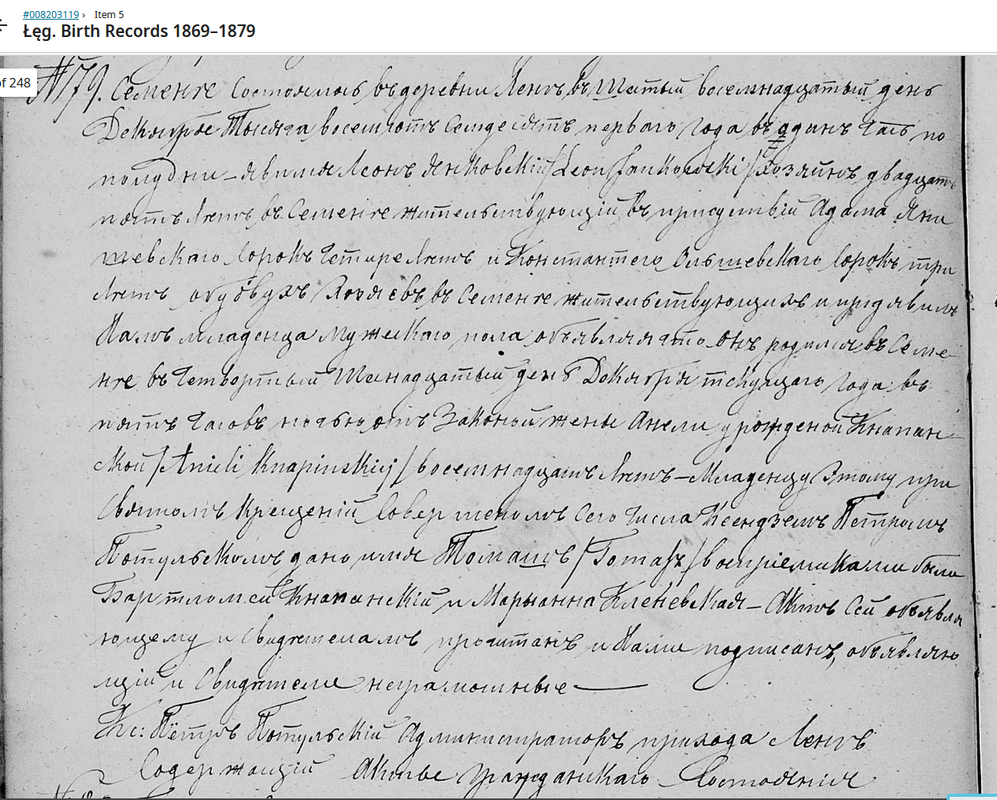 #008203119 › Item 5
Łęg. Birth Records 1869–1879
of 248
№ 79. Семенге Состоялось въ деревни Ленгъ, въ Шестый восемнадцатый день
Декабря Тысяча восемьсотъ Семдесятъ перваго Года въ одинъ Часъ по
полудни – явился Леонъ Янковскій /Leon Jankowski/ Хозяинъ двадцать
пять лѣтъ, въ Семенге жительствующій, въ присутствіи Адама Яни
шевскаго Сорокъ Четыре лѣтъ и Константего Ольшевскаго Сорокъ три
лѣтъ обубухъ Хозяевъ въ Семенге жительствующихъ и предявилъ
Намъ младенца мужескаго пола объявляя что онъ родился въ Семе-
нге въ Четвертый Шеснадцатый день Декабрія текущаго Года въ
пять Часовъ ночью отъ Законой жены Анели урожденой Кнапин-
ской /Anieli Knapinskiej/ восемнадцать лѣтъ – Младенцу Этому при
Святомъ Крещеніи Совершеномъ Сего Числа Ксендземъ Петромъ
Потульскомъ дано имя Томашъ /Tomasz/ воспріемниками были
Бартломей Кнапинскій и Марыанна – Актъ Сей объявля
ющему и Свидетеламъ прочитанъ и Нами подписанъ, объявляю
щій и Свидетеле неграмотные
Кс: Пётръ Потульскій Администраторъ прихода Ленгъ
Содержающій Актые Гражданскаго Состоянія